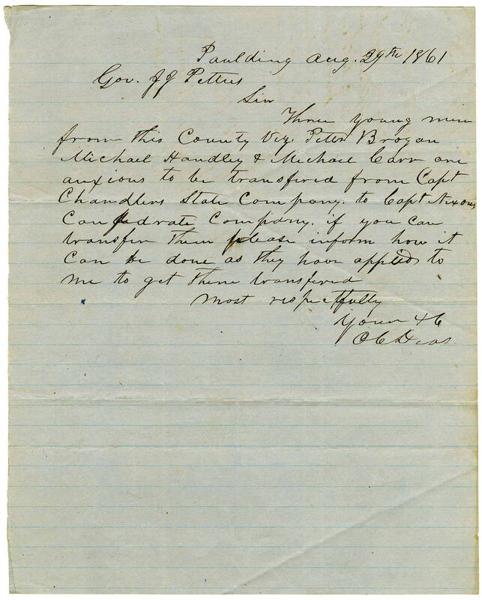 Paulding Aug. 29th 1861
Gov. JJ Pettus
Sir
Three young men
from this County Viz Peter Brogan
Michael Handley & Michael Carr are
anxious to be transfered from Capt
Chandlers State Company. to Capt Nixons
Confedrate Company. if you can
transfer them please inform how it
can be done as they have applied to
me to get them transfered
most respectfully
Yours &c
O C Dease